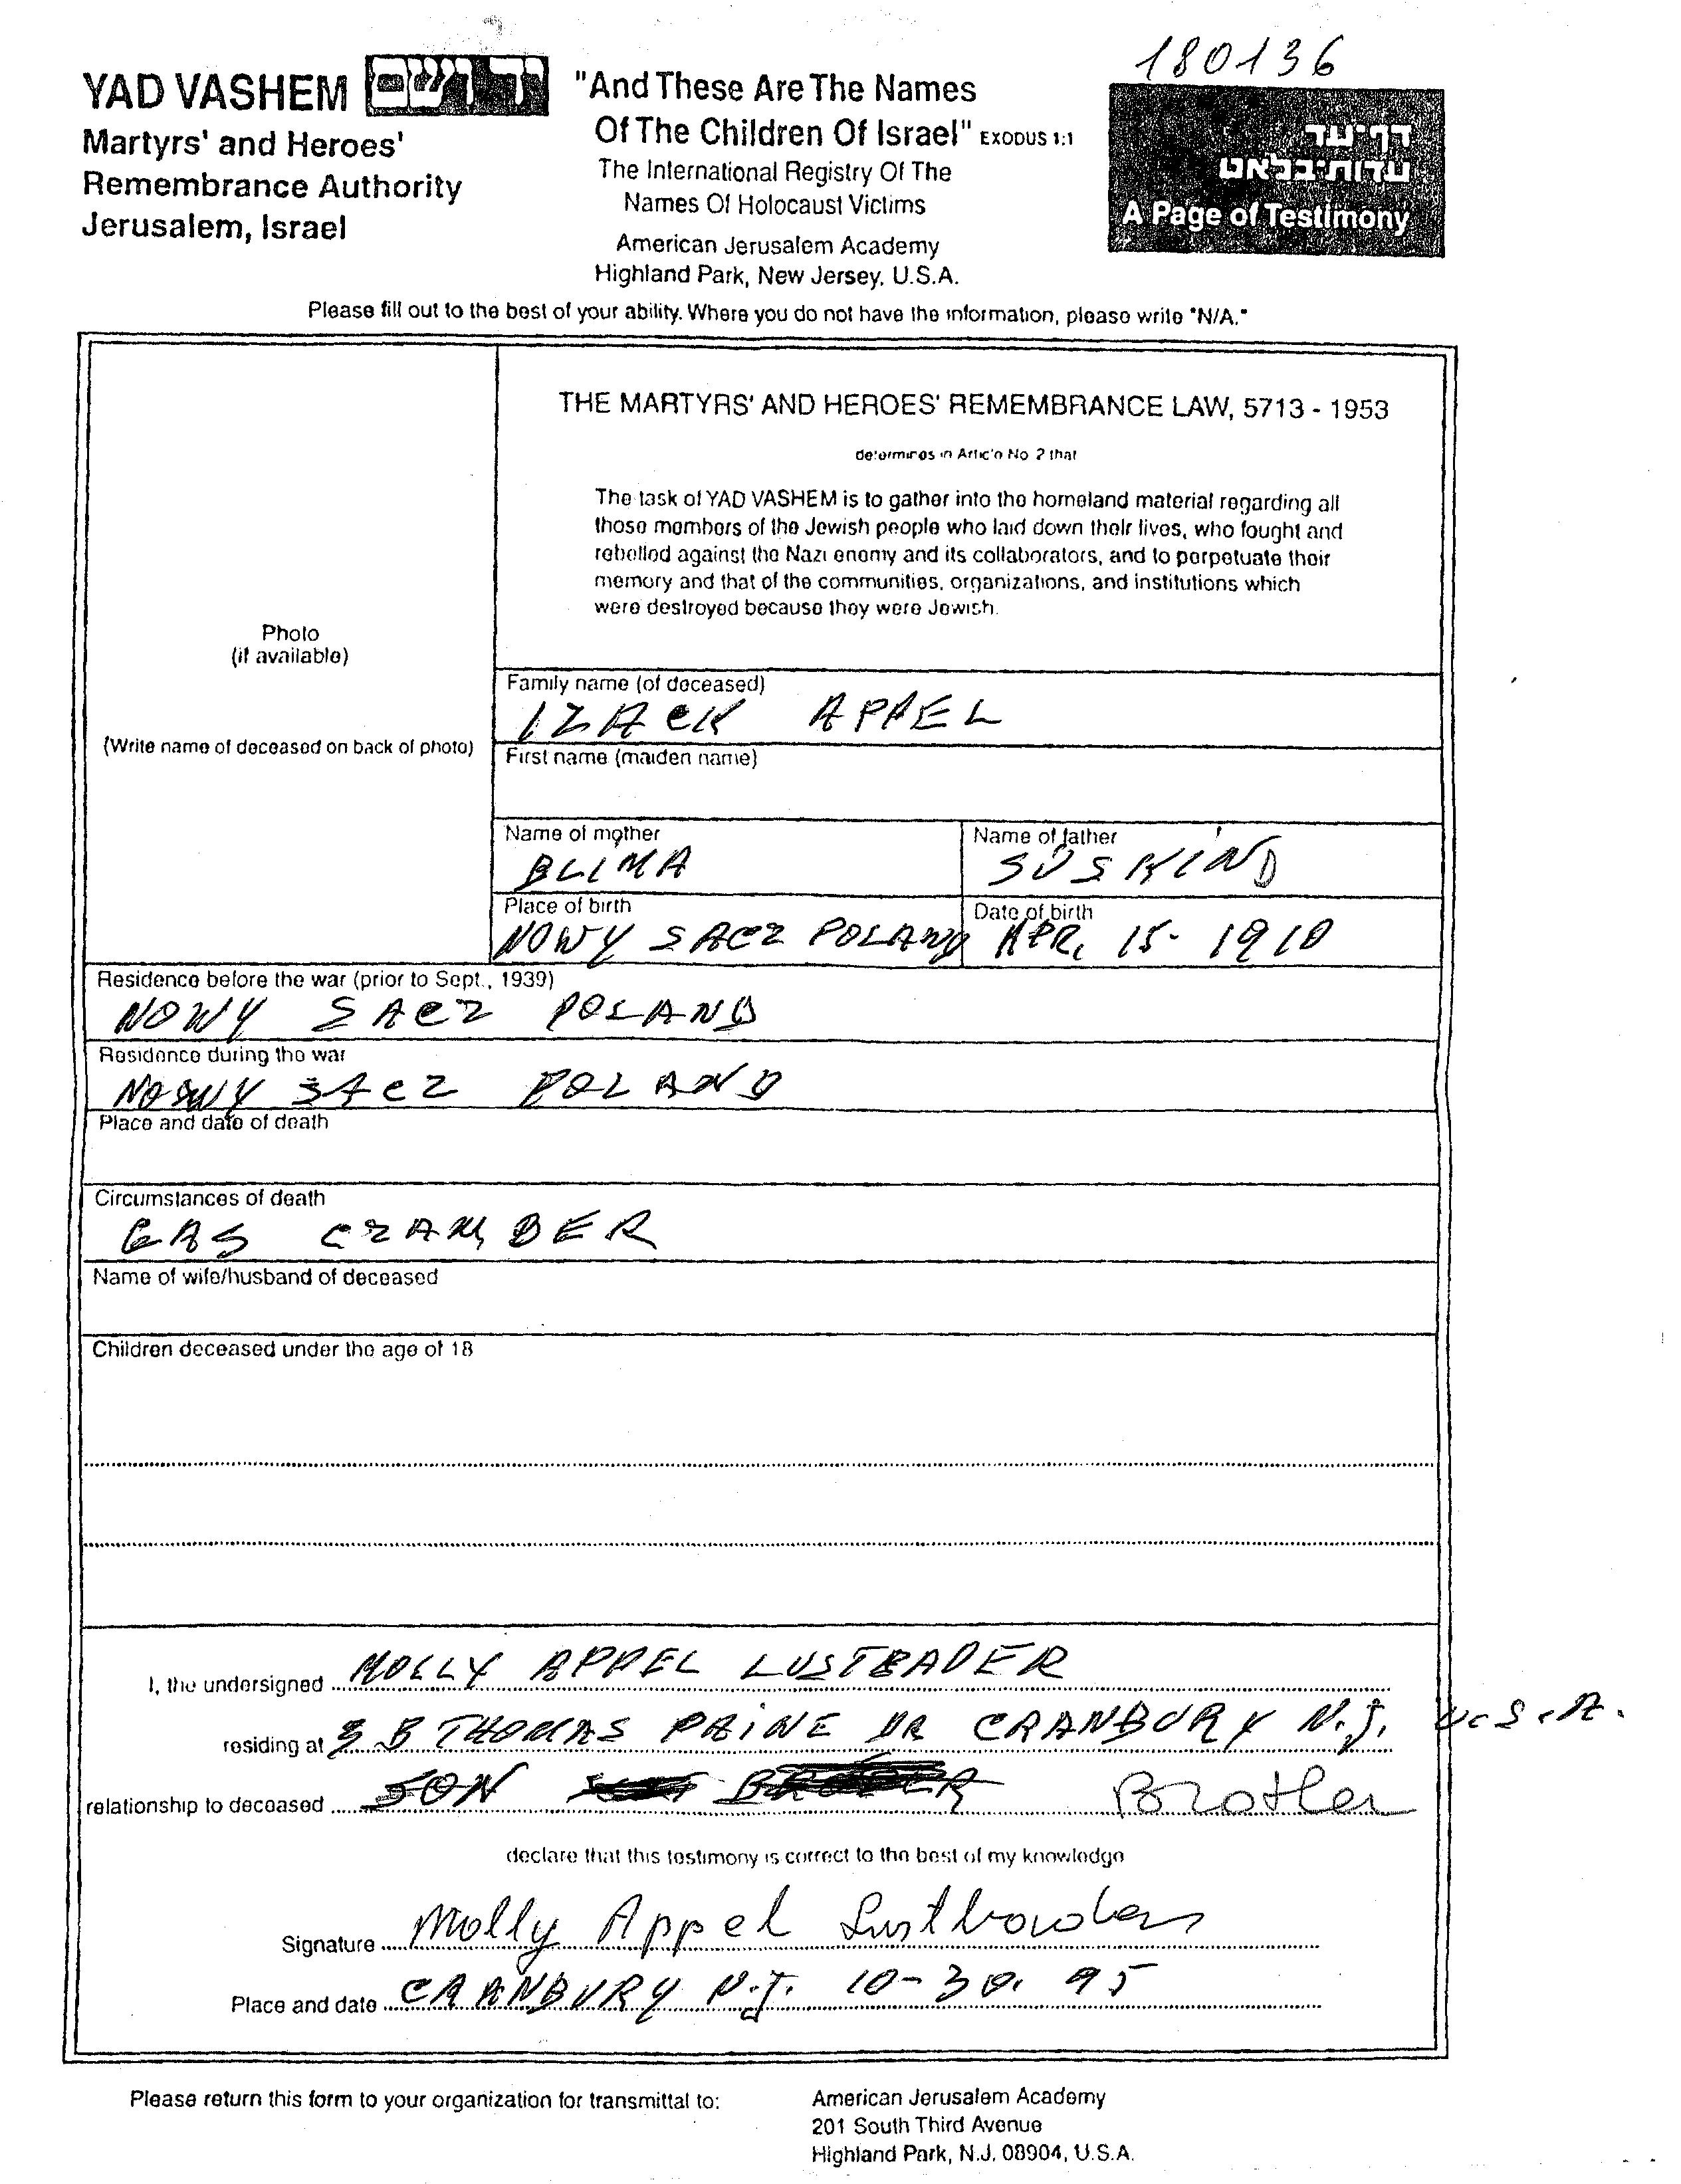 180136
YAD VASHEM יד ושם
Martyrs' and Heroes'
Remembrance Authority
Jerusalem, Israel
"And These Are The Names
Of The Children Of Israel" EXODUS 1:1
The International Registry Of The
Names Of Holocaust Victims
American Jerusalem Academy
Highland Park, New Jersey, U.S.A.
דף-עד
A Page of Testimony
Please fill out to the best of your ability. Where you do not have the information, please write "N/A."
Photo
(if available)
(Write name of deceased on back of photo)
THE MARTYRS' AND HEROES' REMEMBRANCE LAW, 5713 - 1953
determines in Article No 2 that
The task of YAD VASHEM is to gather into the homeland material regarding all
those members of the Jewish people who laid down their lives, who fought and
rebelled against the Nazi enemy and its collaborators, and to perpetuate their
memory and that of the communities, organizations, and institutions which
were destroyed because they were Jewish.
Family name (of deceased)
IZACK APPEL
First name (maiden name)
Name of mother
BLIMA
Name of father
SUSKIND
Place of birth
NOWY SACZ POLAND
Date of birth
APR. 15- 1910
Residence before the war (prior to Sept., 1939)
NOWY SACZ POLAND
Residence during the war
NOWY SACZ POLAND
Place and date of death
Circumstances of death
GAS CZAMBER
Name of wife/husband of deceased
Children deceased under the age of 18
I, the undersigned MOLLY APPEL LUSTBADER
residing at 3 B THOMAS PAINE DR CRANBURY N.J. U.S.A.
relationship to deceased SON Brother
declare that this testimony is correct to the best of my knowledge
Signature Molly Appel Lustbader
Place and date CRANBURY N.J. 10-30. 95
Please return this form to your organization for transmittal to:
American Jerusalem Academy
201 South Third Avenue
Highland Park, N.J. 08904, U.S.A.